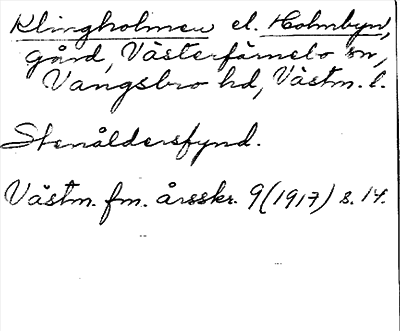 Klingholmen el. Holmbyn,
gård, Västerfärnebo sn,
Vangsbro hd, Västm. l.
Stenåldersfynd.
Västm. fm. årsskr. 9 (1917) s. 14.